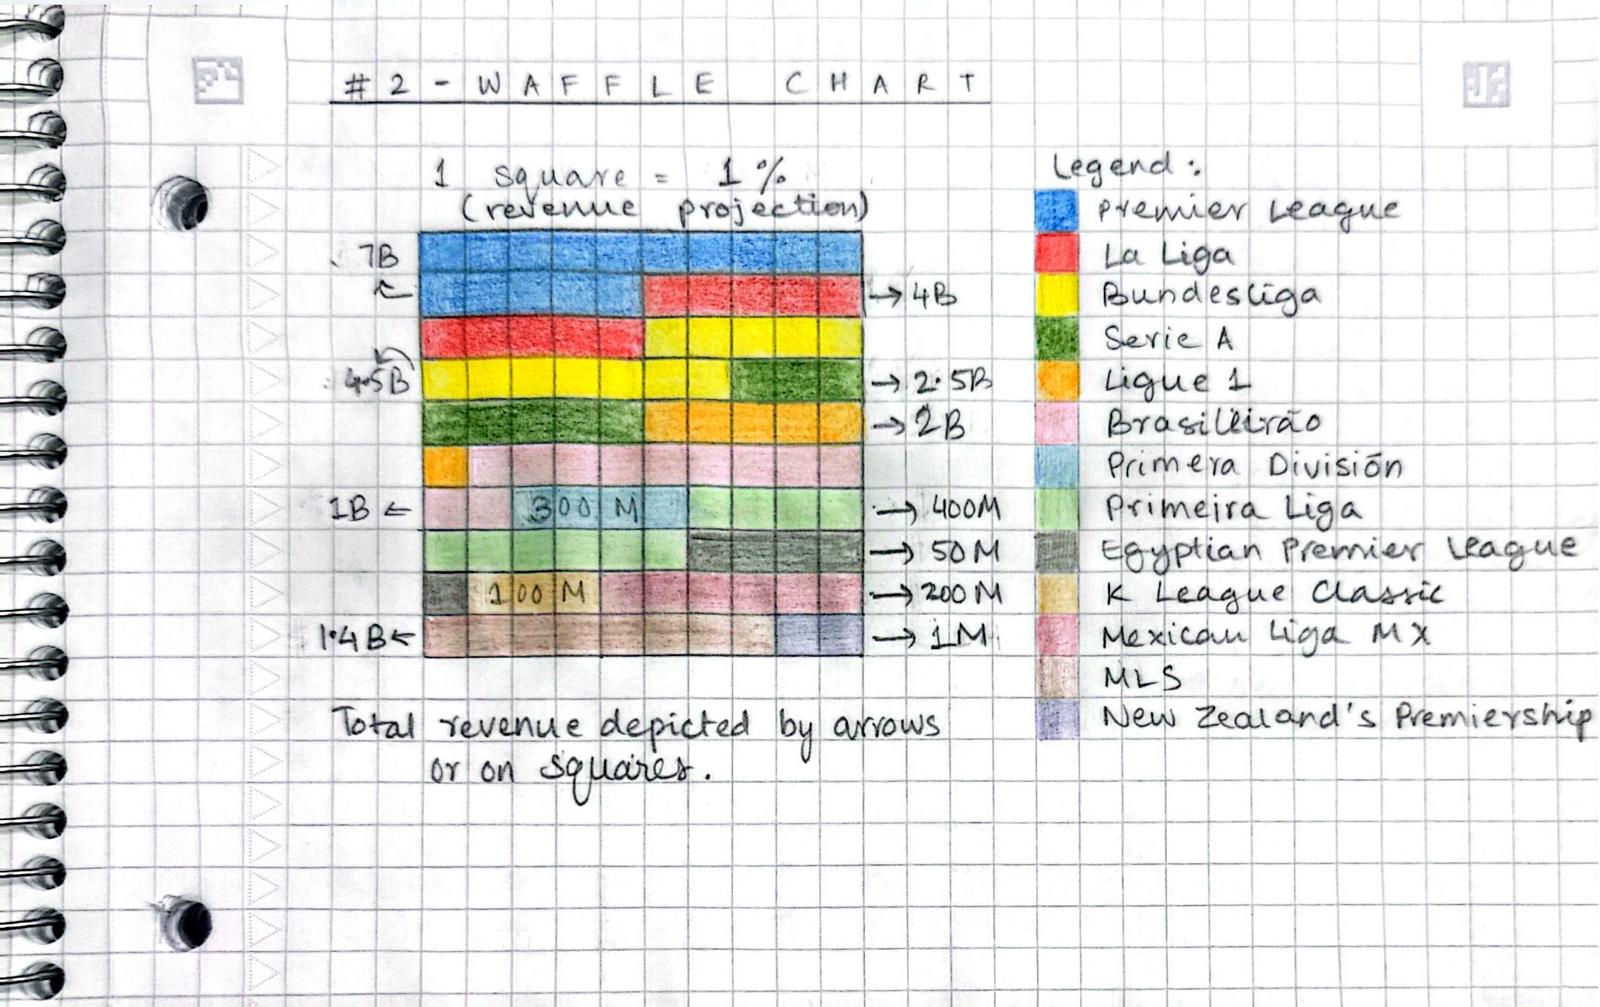 #2 - WAFFLE CHART
1 square = 1%
(revenue projection)
7B
4B
4.5B
2.5B
2B
1B
300 M
400M
50 M
100 M
200 M
1.4B
1M
Total revenue depicted by arrows
or on squares.
Legend:
Premier League
La Liga
Bundesliga
Serie A
Ligue 1
Brasilleirão
Primera División
Primeira Liga
Egyptian Premier League
K League Classic
Mexican Liga MX
MLS
New Zealand's Premiership